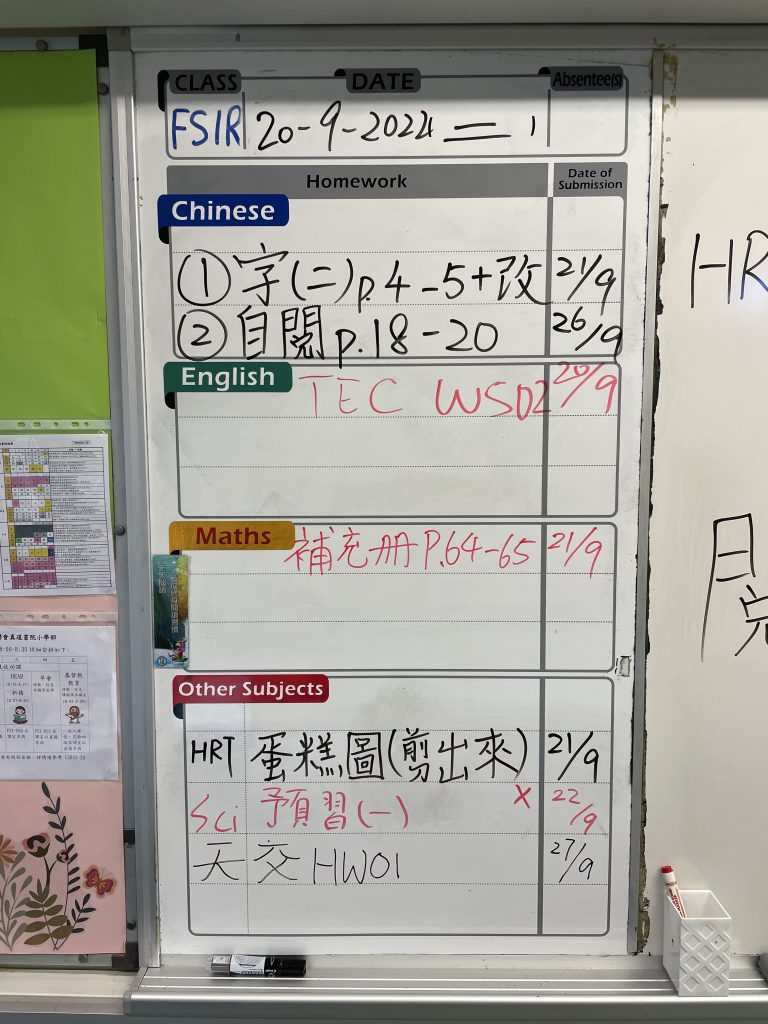 CLASS DATE Absentee(s)
FS1R 20-9-2024 二 1
Homework Date of Submission
Chinese
① 字(二)p.4-5+改 21/9
② 自閱p.18-20 26/9
English TEC WS02 20/9
Maths 補充册P.64-65 21/9
天天閱讀
Other Subjects
HRT 蛋糕圖(剪出來) 21/9
Sci 預習(一) X 22/9
天 交HW01 27/9
HR
DEAR
早會
祈禱